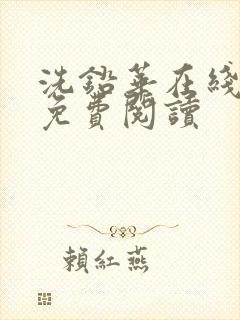 洗鉛華在綫
免費閱讀
賴紅燕